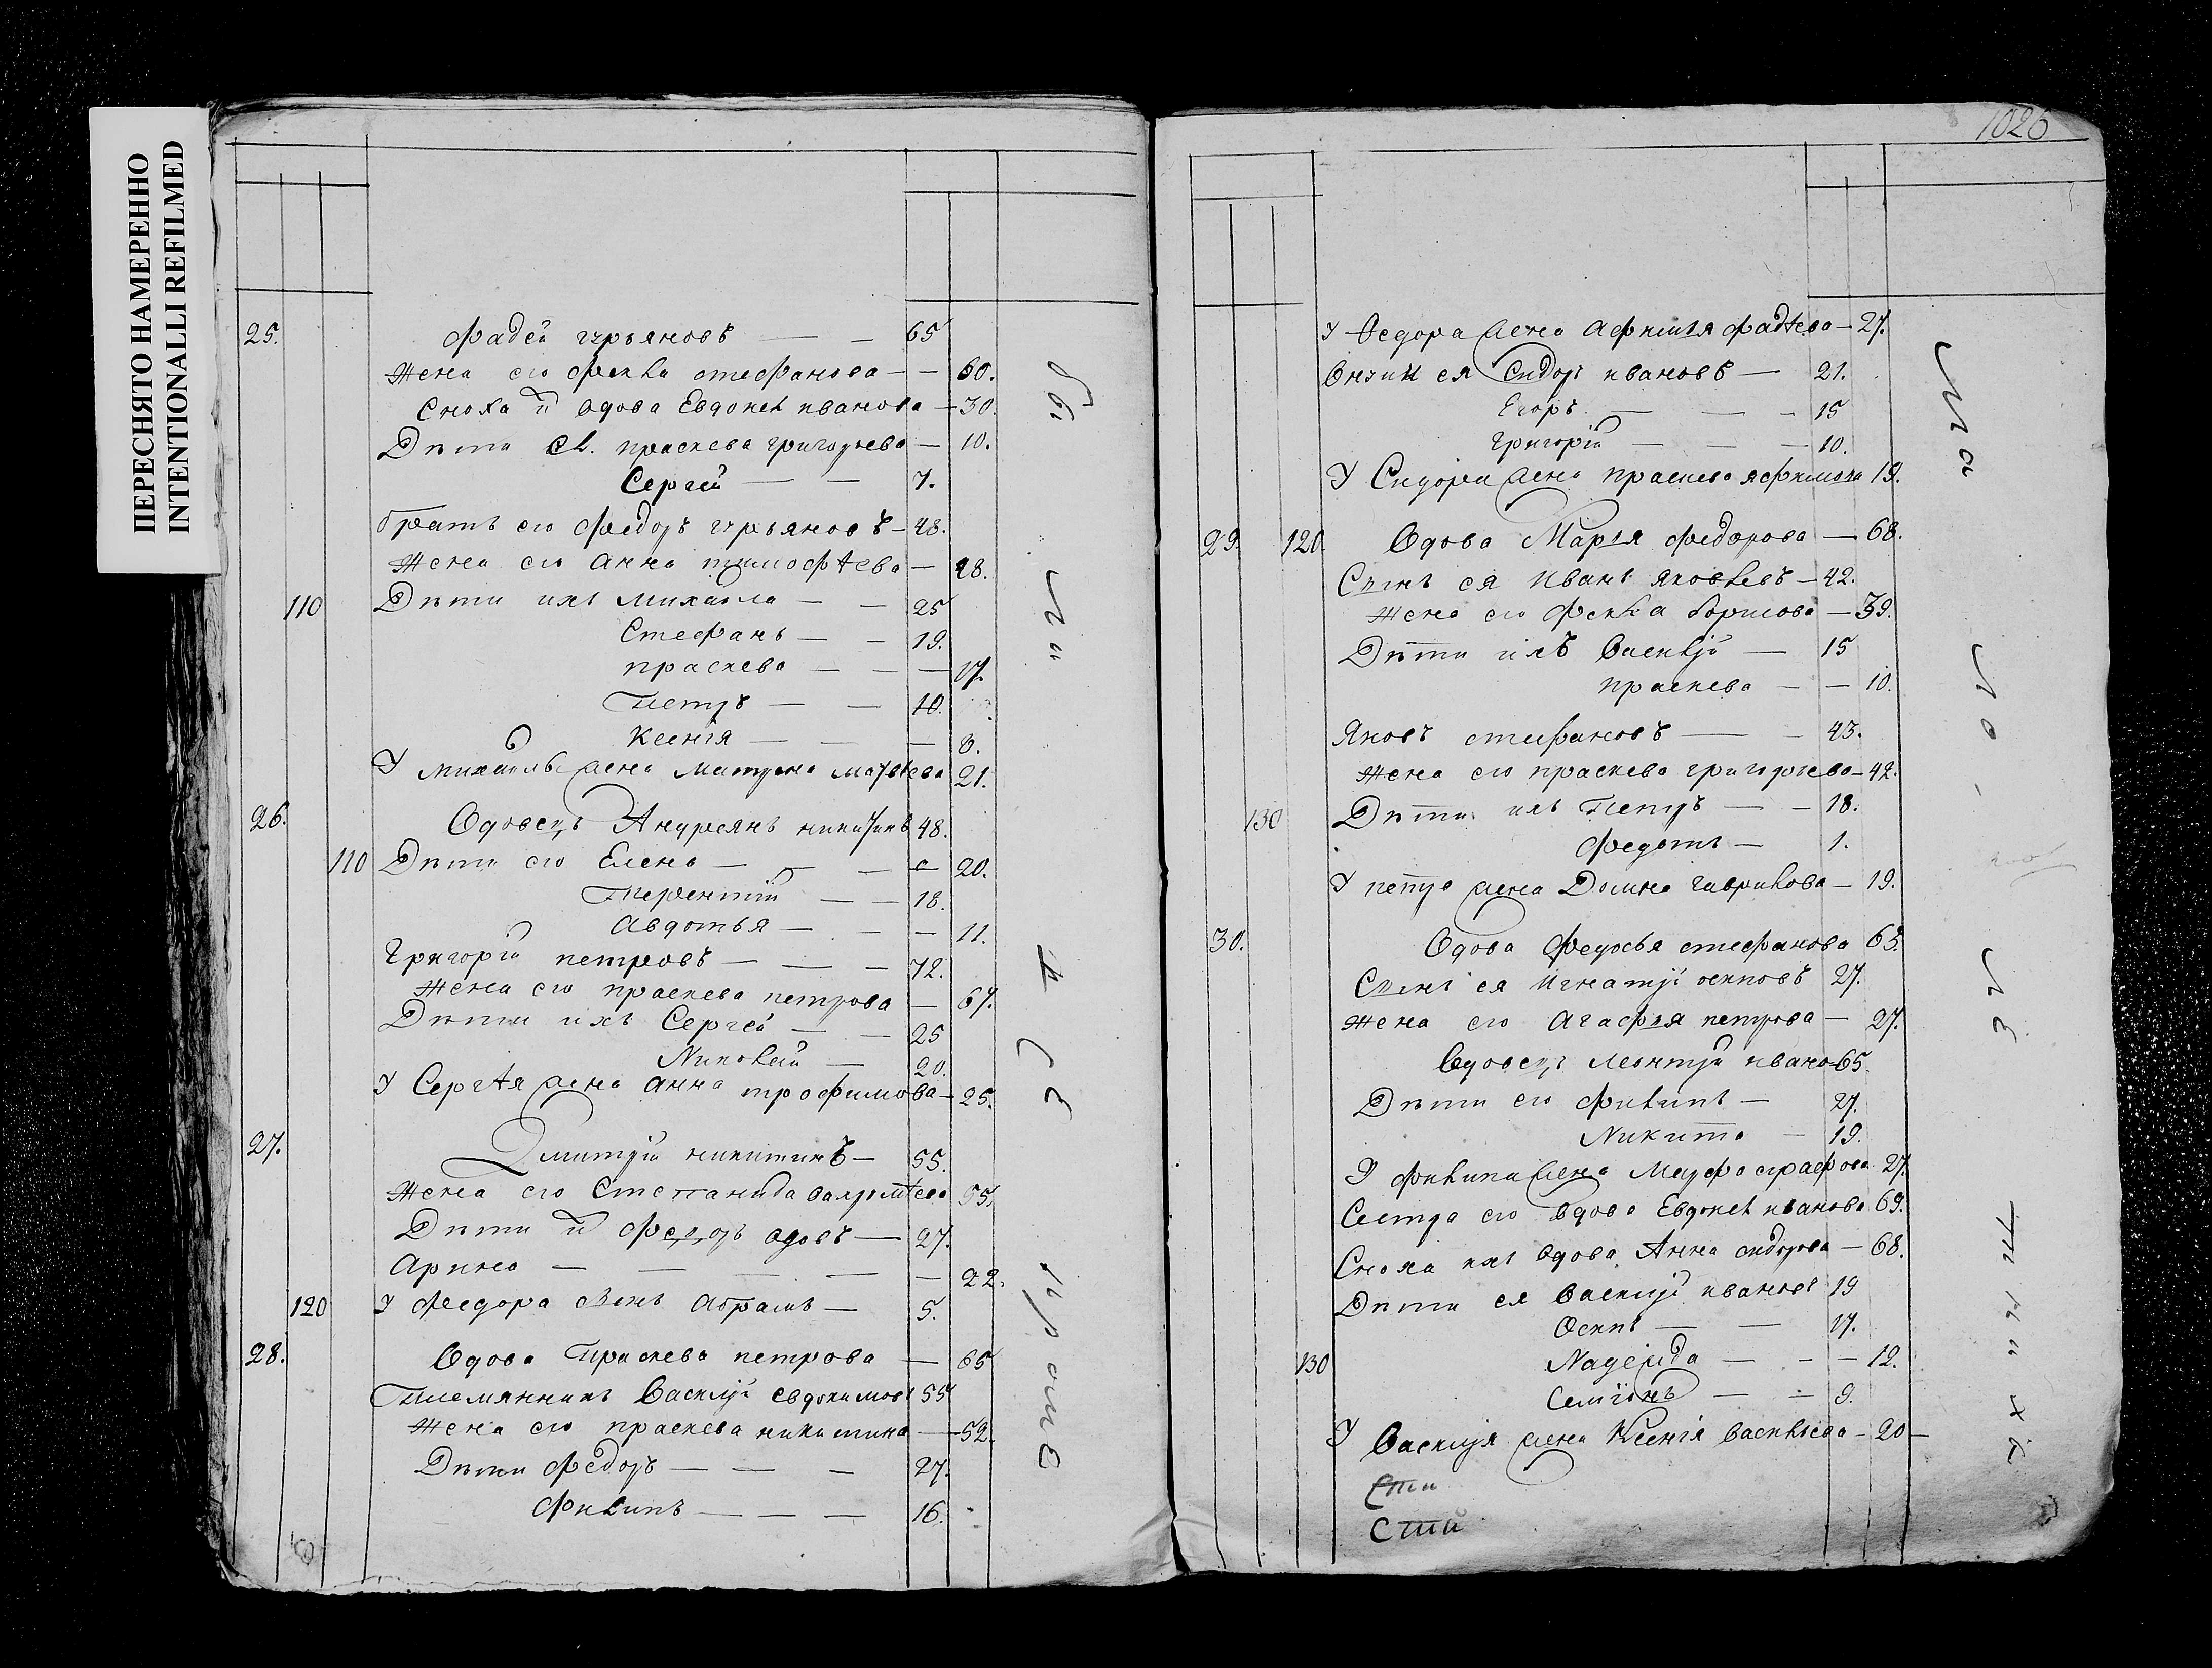 ПЕРЕСНЯТО НАМЕРЕННО
INTENTIONALLI REFILMED
25. Фадей гурьяновъ — — 65
Жена его Фекла стефанова — — 60.
Сноха вдова Евдокея иванова — 30.
Дети праскева григорьева — 10.
Сергей — — 7.
братъ его Федоръ гурьяновъ — 48.
Жена его анна тимофеева — 48.
110 Дети ихъ михайла — — 25
Стефанъ — — 19.
праскева — — — 17.
Петръ — — 10.
Ксения — — — 8.
У михайлы жена матрена матвеева 21.
26. Вдовецъ Андреянъ никитинъ 48.
110 Дети его Елена — — — 20.
Терентий — — 18.
авдотья — — — 11.
Григорий петровъ — — — 72.
Жена его праскева петрова — 67.
Дети ихъ Сергей — — 25
Николай — 20.
У Сергея жена анна трофимова — 25.
27. Дмитрий никитинъ — 55.
Жена его Степанида 55.
Дети Федоръ вдовъ — 27.
Арина — — — — — 22.
120 У Федора сынъ абрамъ — 5.
28. Вдова Праскева петрова — 65
Племянникъ Василий евдокимовъ 55
Жена его праскева никитина — 52.
Дети Федоръ — — — 27.
Филипъ — — — 16.
1026
У Федора жена афимья фадеева — 27.
Сидоръ ивановъ — 21.
Егоръ — — — 15
григорий — — — 10.
У Сидора жена праскева 19.
29. 120. Вдова Марья федорова — 68.
Сынъ ея иванъ яковлевъ — 42.
Жена его Фекла борисова — 39.
Дети ихъ Василий — 15
праскева — — 10.
Яковъ стефановъ — — 43.
Жена его праскева григорьева — 42.
130 Дети ихъ Петръ — — 18.
Федотъ — 1.
У петра жена Домна гаврилова — 19.
30. Вдова Федосья стефанова 63.
Сынъ ея игнатий осиповъ 27.
Жена его агафья петрова — 27.
Вдовецъ леонтий ивано 65.
Дети его Филипъ — 27.
Никита — 19.
У филипа жена Марфа 27.
Сестра его вдова Евдокея иванова 69.
Сноха ихъ вдова Анна сидорова — 68.
Дети ея Василий ивановъ 19
Осипъ — — 17.
130 Надежда — — — 12.
Семионъ — — 9.
У Василия жена Ксения васильева — 20 —